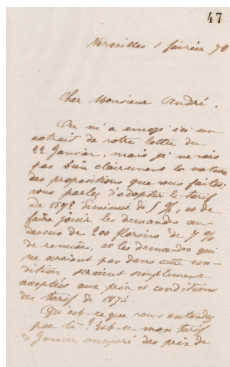 47
Versailles 1 février 78
Cher Monsieur André.
On m'a envoyé ici un
extrait de votre lettre du
22 Janvier, mais je ne vois
pas bien clairement la nature
des propositions que vous faites;
vous parlez d'adopter le tarif
de 1872 diminué de 5 %, et de
faire jouir les demandes au-
dessus de 200 florins de 7 %
de remise, et les demandes qui
ne seraient pas dans cette con-
dition seraient simplement
acceptées aux prix et conditions
du tarif de 1875.
Qu'est-ce que vous entendez
par là? Est-ce mon tarif
Janvier majoré des prix de